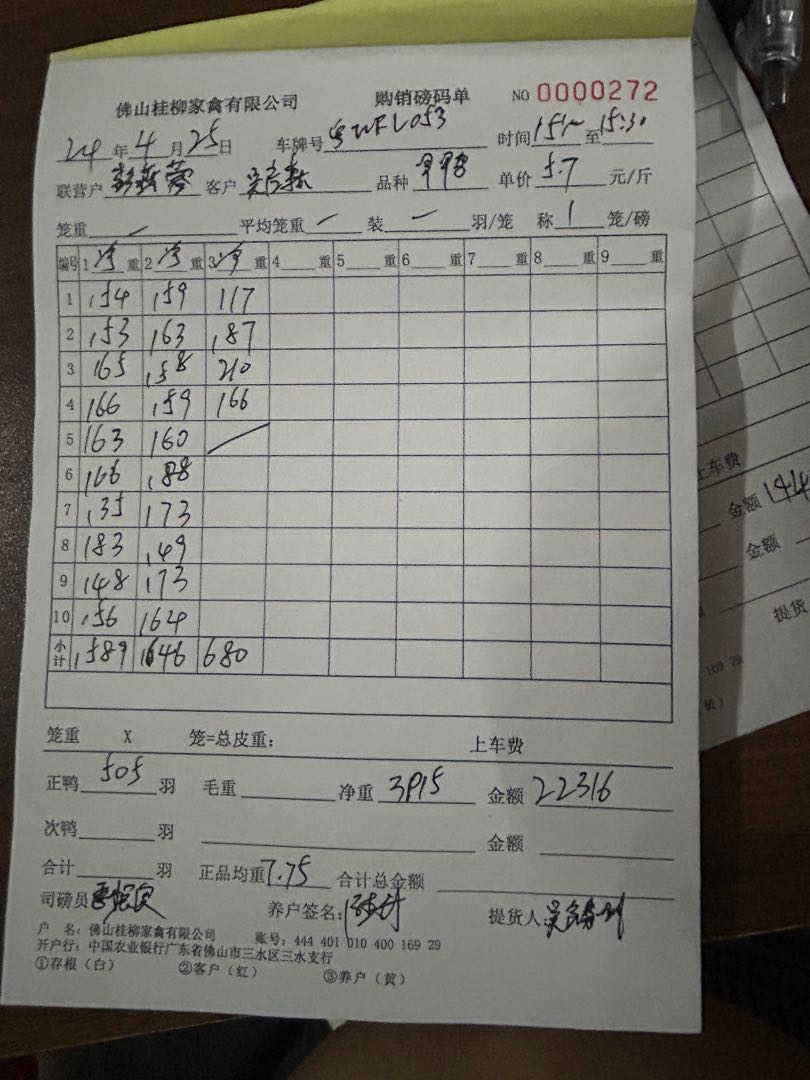 佛山桂柳家禽有限公司 购销磅码单 NO 0000272
24 年 4 月 25 日 车牌号 时间 至 15:30
联营户 客户 品种 单价 5.7 元/斤
笼重 一 平均笼重 一 装 一 羽/笼 称 1 笼/磅
编号 1 净 重 2 净 重 3 净 重 4 重 5 重 6 重 7 重 8 重 9 重
1 154 159 117
2 153 163 187
3 165 158 210
4 166 159 166
5 163 160
6 166 188
7 135 173
8 183 149
9 148 173
10 156 164
小计 1589 1646 680
笼重 X 笼=总皮重： 上车费
正鸭 505 羽 毛重 净重 3915 金额 22316
次鸭 羽 金额
合计 羽 正品均重 7.75 合计总金额
司磅员 养户签名： 提货人
户 名：佛山桂柳家禽有限公司 账号：444 401 010 400 169 29
开户行：中国农业银行广东省佛山市三水区三水支行
①存根（白） ②客户（红） ③养户（黄）
上车费
金额
金额
提货
169 29
黄）